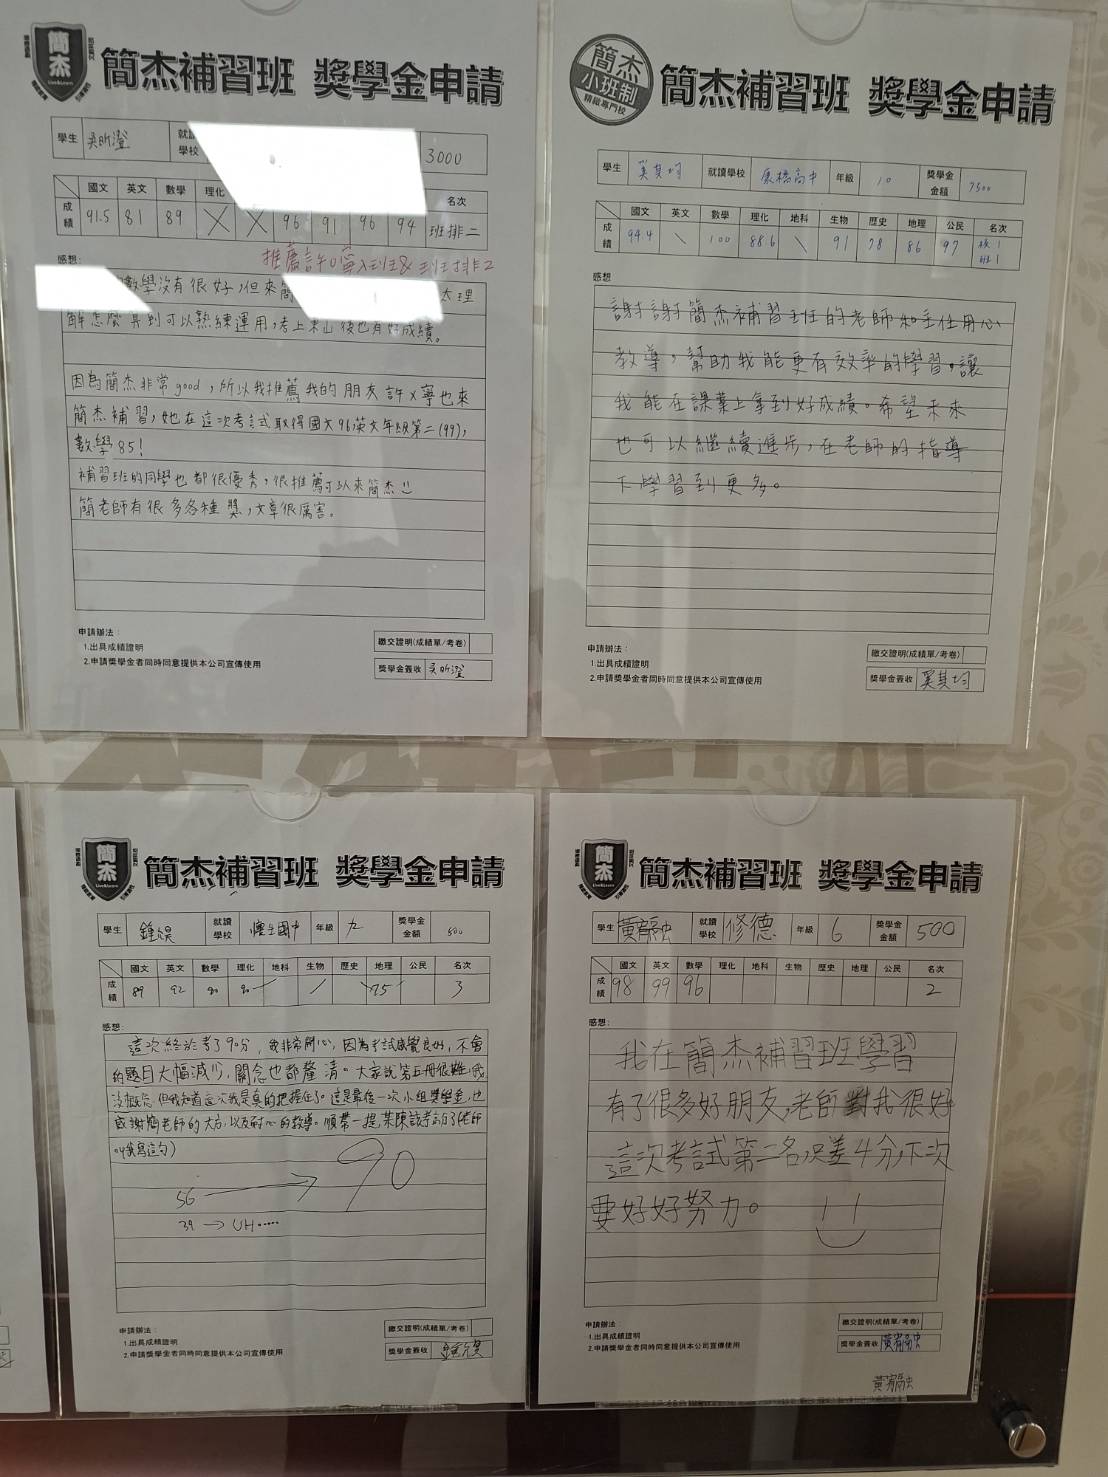 簡杰補習班 獎學金申請
學生 吳昕澄 3000
國文 英文 數學 理化 名次
成績 91.5 81 89 96 91 96 94 班排二
感想:
數學沒有很好,但來簡
解怎麼算到可以熟練運用,考上東山後也有好成績。
因為簡杰非常good,所以我推薦我的朋友許X寧也來
簡杰補習,她在這次考試取得國文96英文年級第二(99),
數學85!
補習班的同學也都很優秀,很推薦可以來簡杰
簡老師有很多各種獎,文章很厲害。
申請辦法:
1.出具成績證明
2.申請獎學金者同時同意提供本公司宣傳使用
繳交證明(成績單/考卷)
獎學金簽收 吳昕澄
簡杰
小班制
精緻專門校
簡杰補習班 獎學金申請
學生 奚其均 就讀學校 康橋高中 年級 10 獎學金金額 7500
國文 英文 數學 理化 地科 生物 歷史 地理 公民 名次
成績 94.4 \ 100 88.6 \ 91 78 86 97 校1 班1
感想
謝謝簡杰補習班的老師和主任用心
教導,幫助我能更有效率的學習。讓
我能在課業上拿到好成績。希望未來
也可以繼續進步,在老師的指導
下學習到更多。
申請辦法:
1.出具成績證明
2.申請獎學金者同時同意提供本公司宣傳使用
繳交證明(成績單/考卷)
獎學金簽收 奚其均
簡杰補習班 獎學金申請
學生 就讀學校 懷生國中 年級 九 獎學金金額 500
國文 英文 數學 理化 地科 生物 歷史 地理 公民 名次
成績 89 92 90 90 95 3
感想:
這次終於考了90分,我非常開心,因為考試感覺良好,不會
的題目大幅減少,關念也都釐清。大家說第五冊很難,我
沒概念,但我知道這次我是真的把握住了。這是最後一次小組獎學金,也
感謝簡老師的大方,以及耐心的教導。順帶一提,某陳該考高分了(老師
叫我寫這句)
56 → 90
39 → UH.....
申請辦法:
1.出具成績證明
2.申請獎學金者同時同意提供本公司宣傳使用
繳交證明(成績單/考卷)
獎學金簽收
簡杰補習班 獎學金申請
學生 就讀學校 修德 年級 6 獎學金金額 500
國文 英文 數學 理化 地科 生物 歷史 地理 公民 名次
成績 98 99 96 2
感想:
我在簡杰補習班學習
有了很多好朋友,老師對我很好
這次考試第二名,只差4分,下次
要好好努力。
申請辦法:
1.出具成績證明
2.申請獎學金者同時同意提供本公司宣傳使用
繳交證明(成績單/考卷)
獎學金簽收